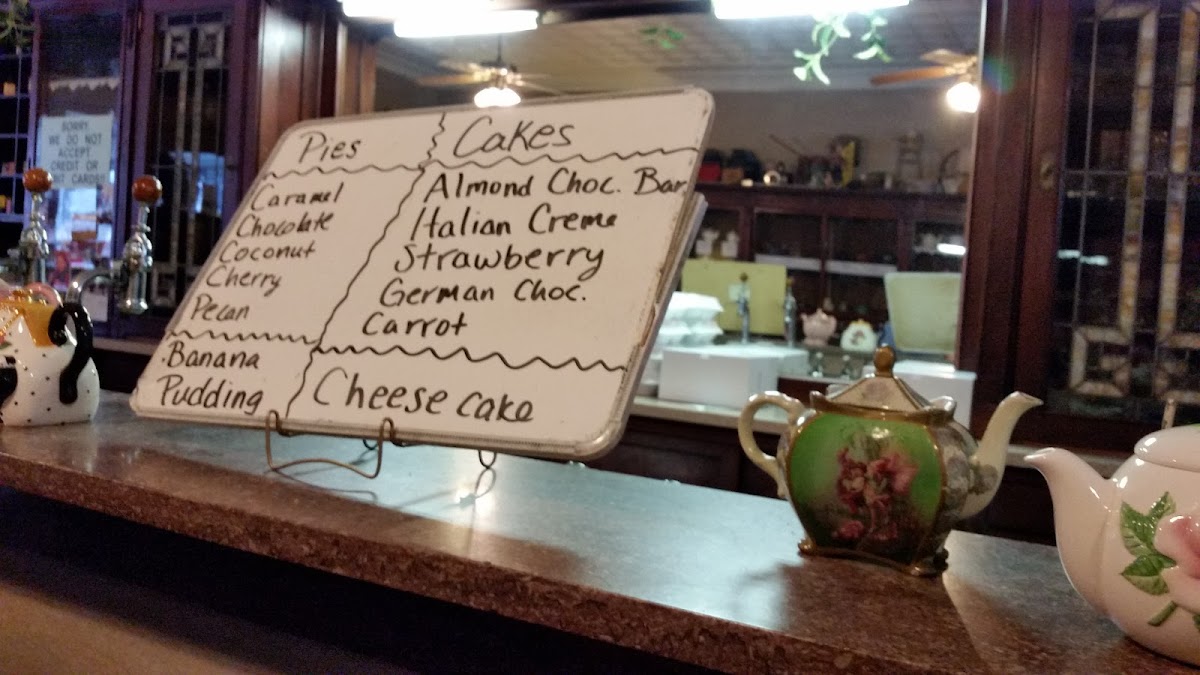 SORRY
WE DO NOT
ACCEPT
CREDIT OR
DEBIT CARDS
Pies
Caramel
Chocolate
Coconut
Cherry
Pecan
Banana
Pudding
Cakes
Almond Choc. Bar
Italian Creme
Strawberry
German Choc.
Carrot
Cheese cake